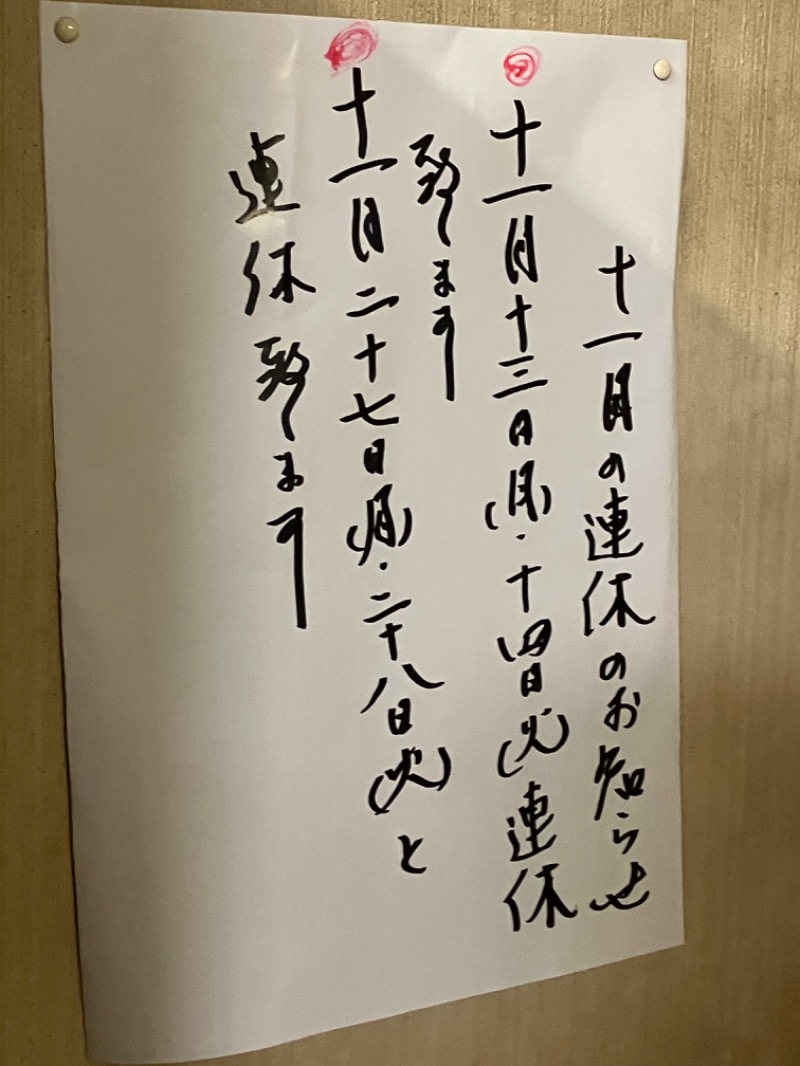 十一月の連休のお知らせ
十一月十三日(月)・十四日(火)連休
致します
十一月二十七日(月)・二十八日(火)と
連休致します